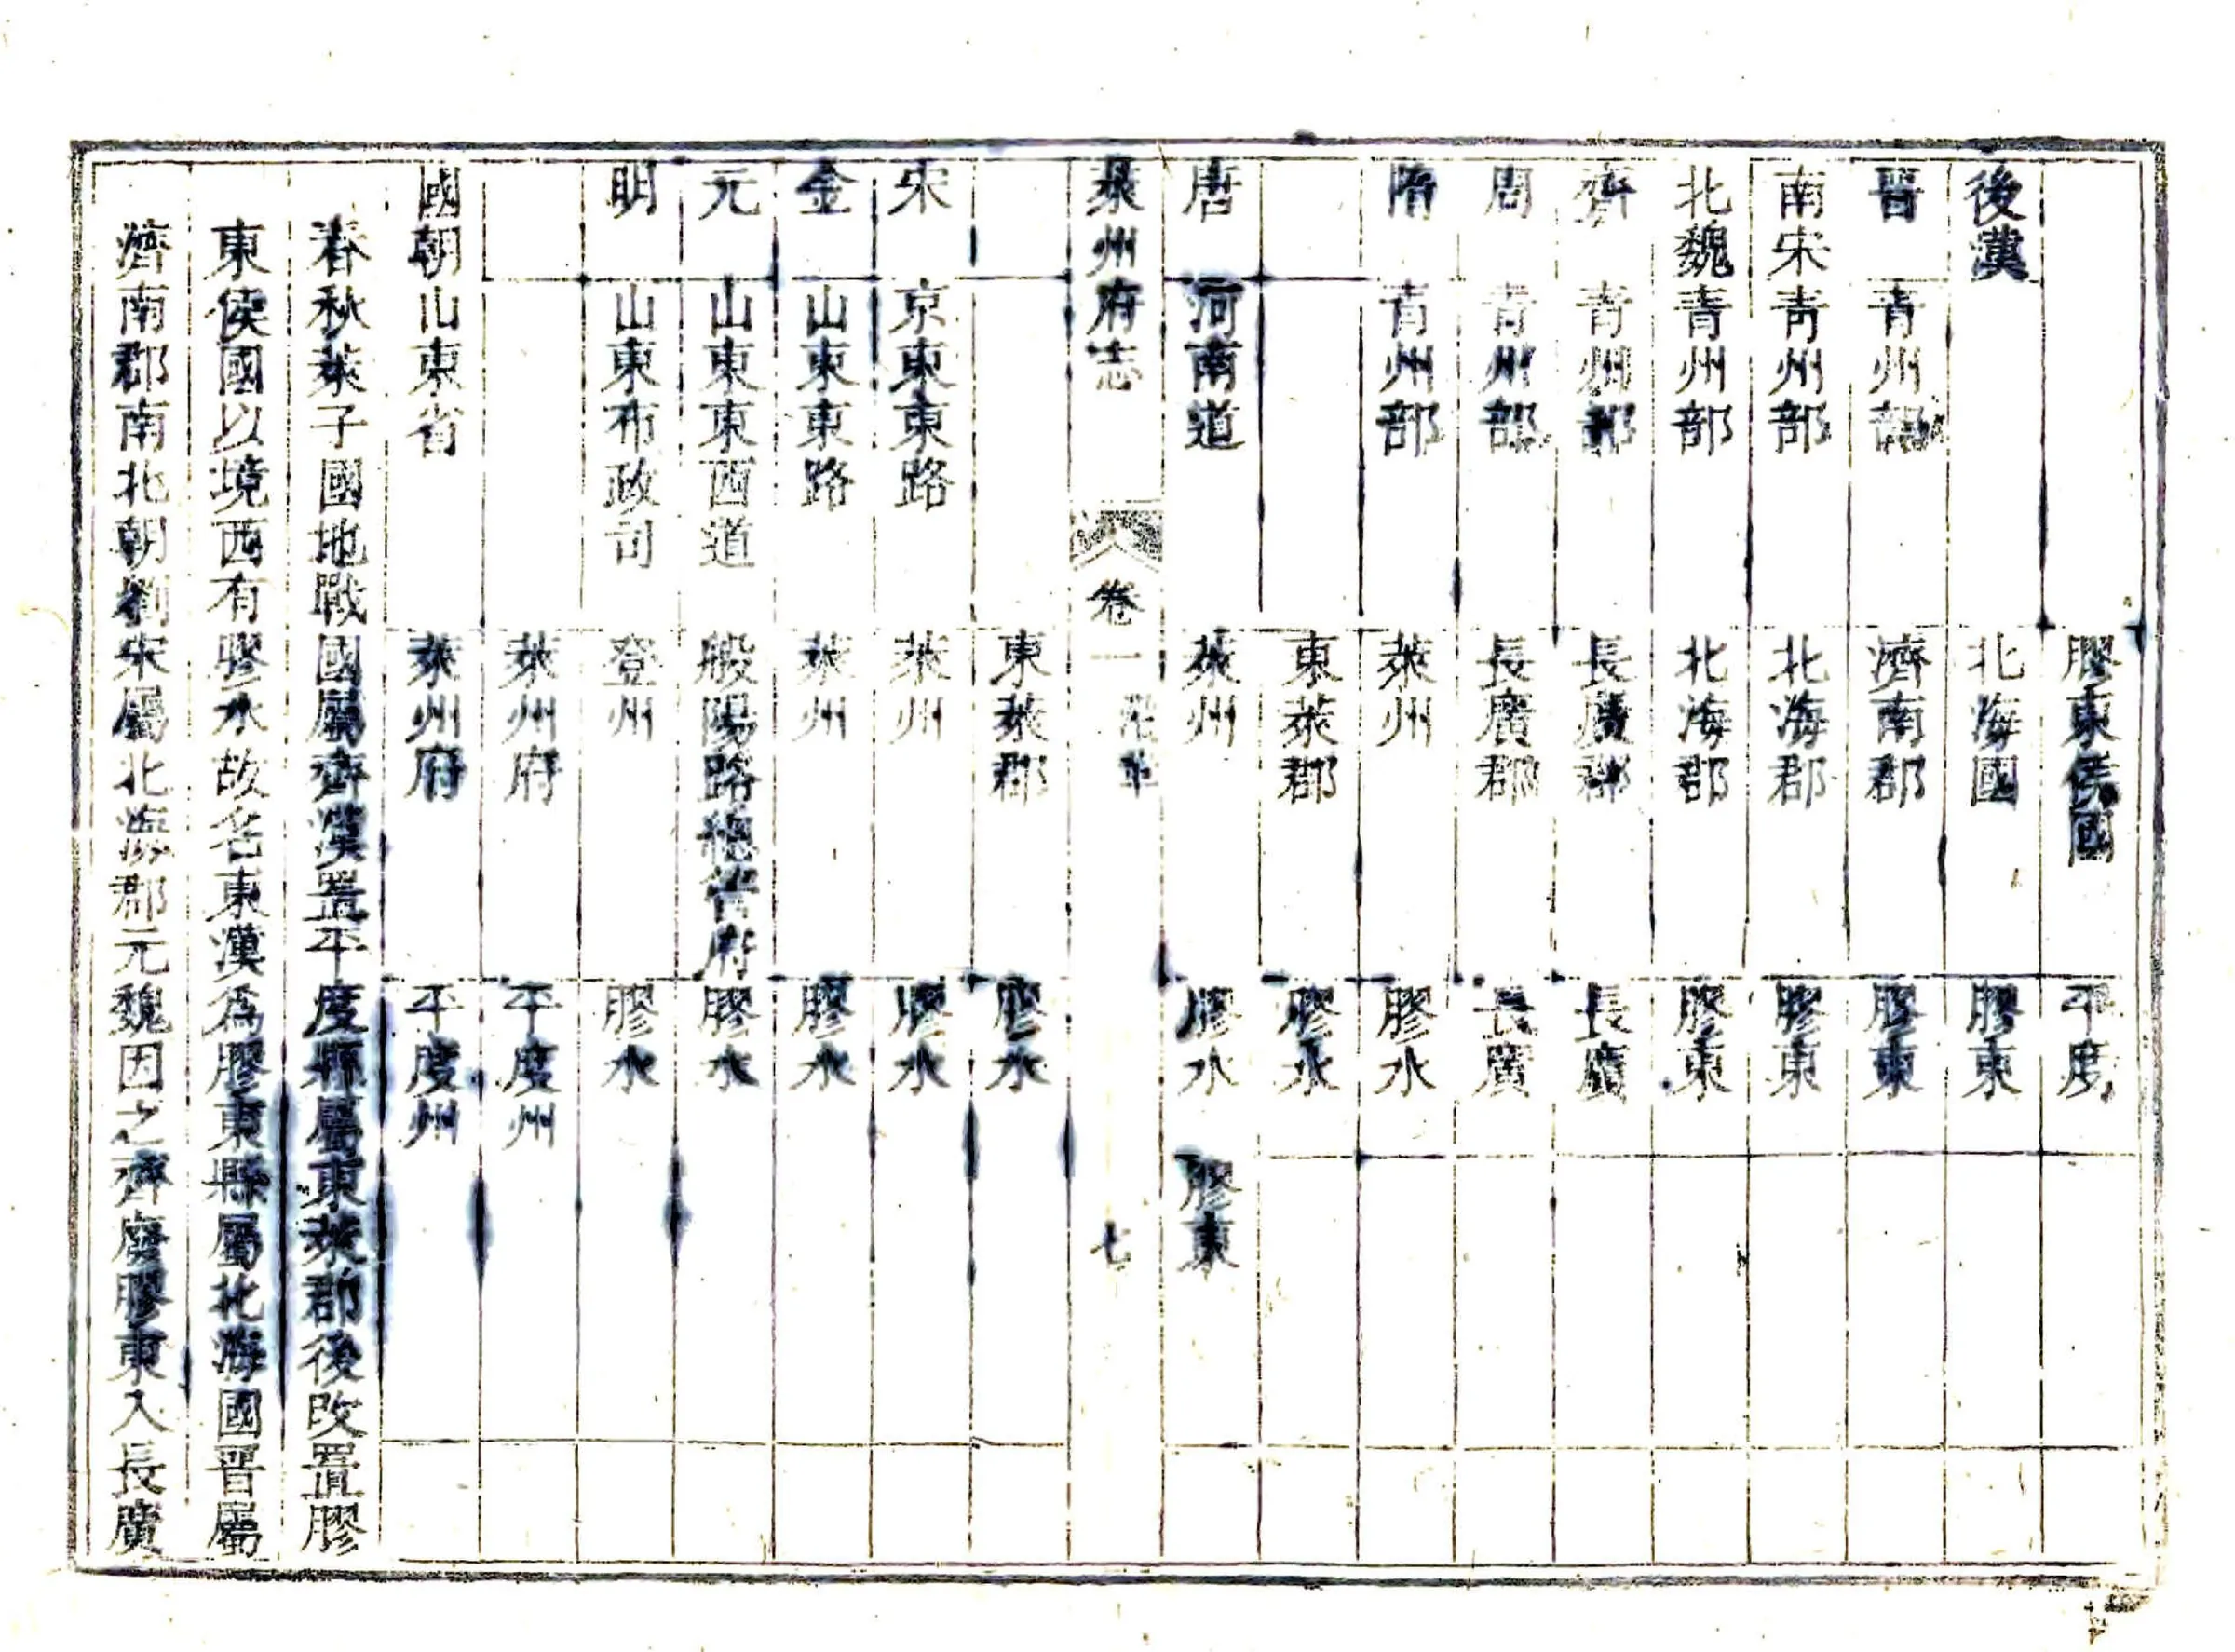 膠東侯國 平度
後漢 北海國 膠東
晉 青州部 濟南郡 膠東
南宋 青州部 北海郡 膠東
北魏 青州部 北海郡 膠東
齊 青州部 長廣郡 長廣
周 青州部 長廣郡 長廣
隋 青州部 萊州 膠水
東萊郡 膠水
唐 河南道 萊州 膠水 膠東
萊州府志 卷一 沿革 七
東萊郡 膠水
宋 京東東路 萊州 膠水
金 山東東路 萊州 膠水
元 山東東西道 般陽路總管府 膠水
明 山東布政司 登州 膠水
萊州府 平度州
國朝 山東省 萊州府 平度州
春秋萊子國地戰國屬齊漢置平度縣屬東萊郡後改置膠
東侯國以境西有膠水故名東漢爲膠東縣屬北海國晋屬
濟南郡南北朝劉宋屬北海郡元魏因之齊廢膠東入長廣